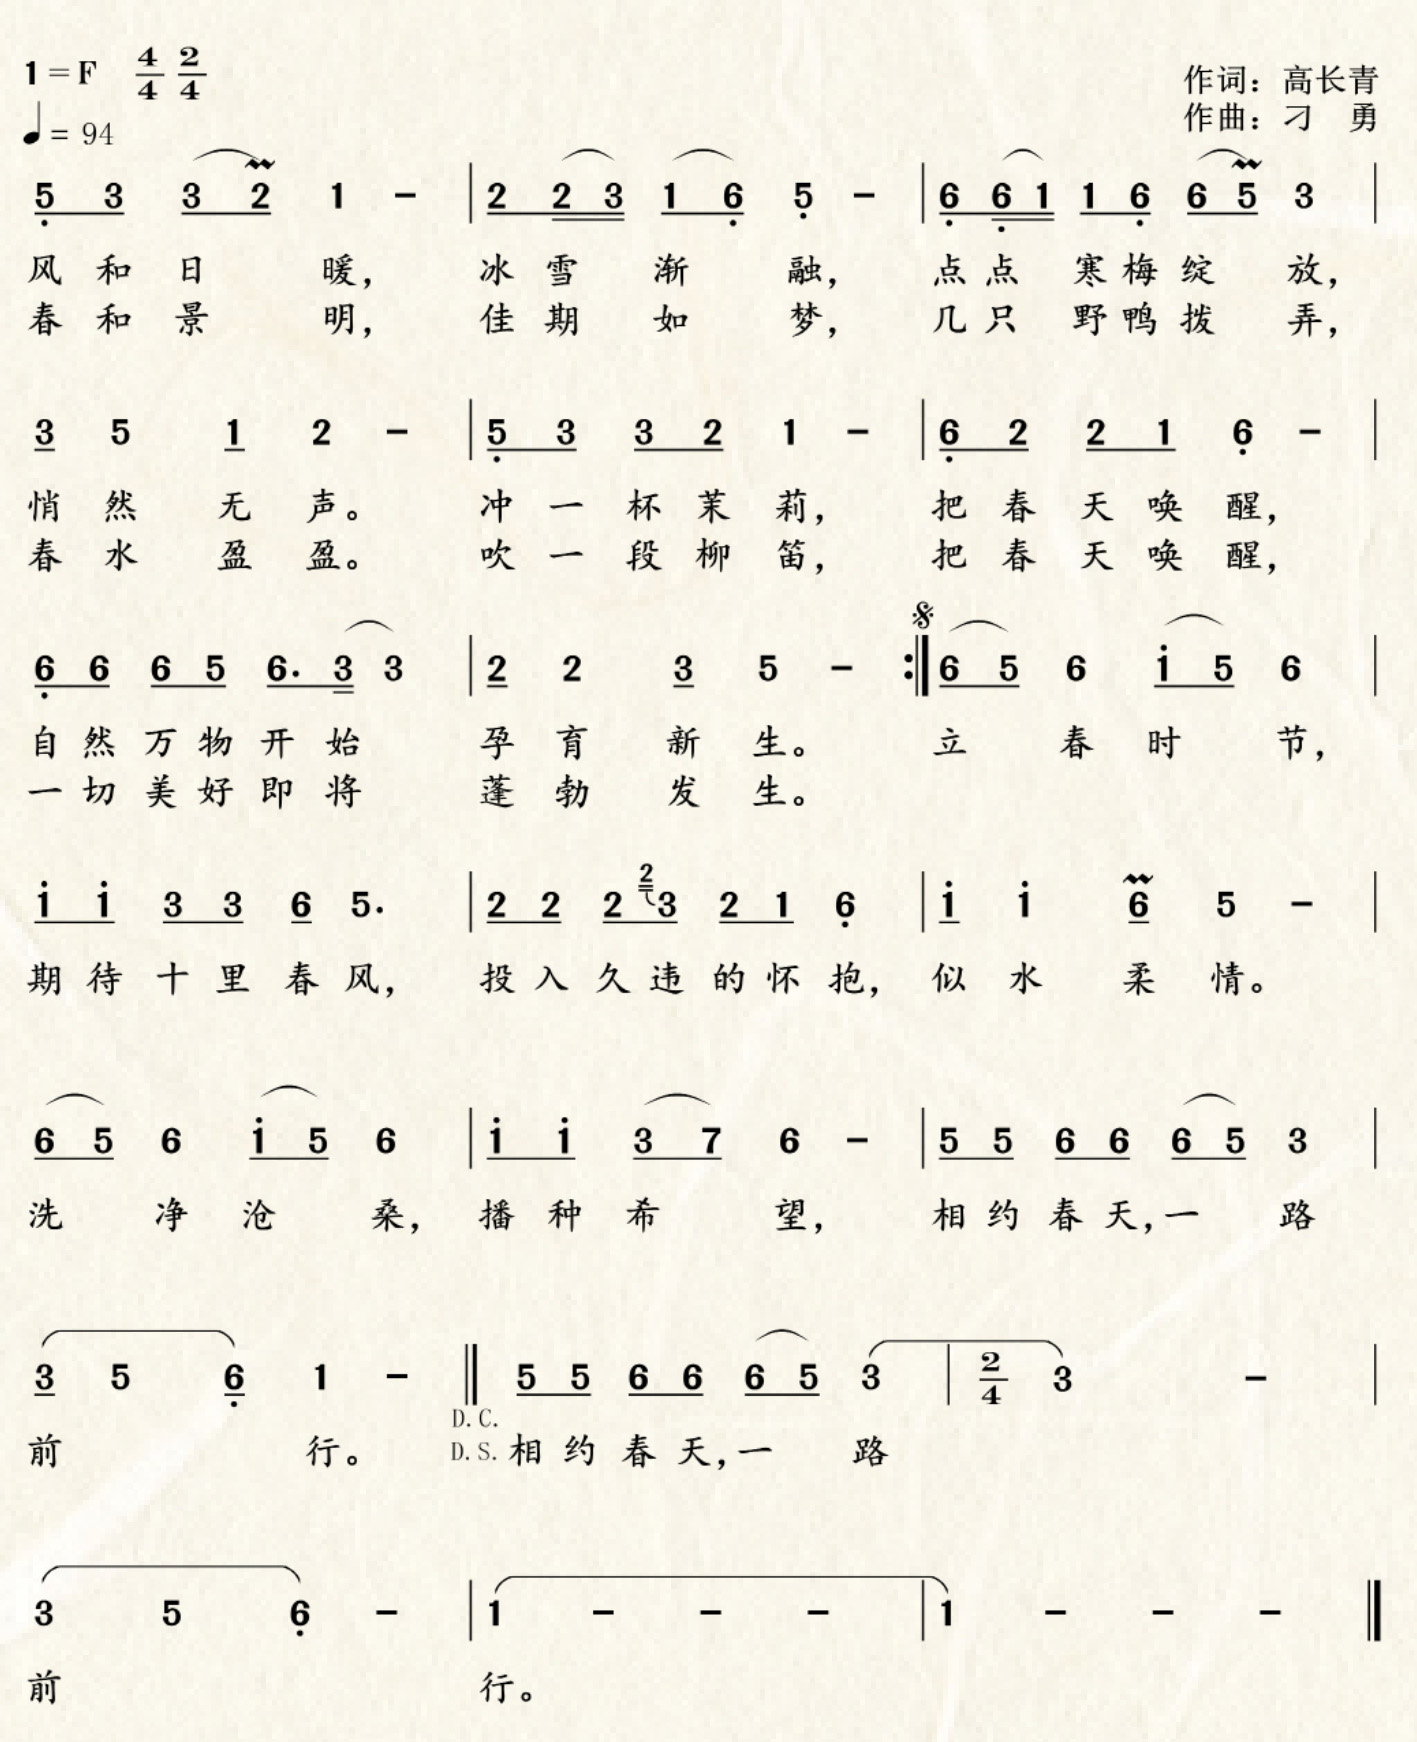 1=F 4/4 2/4
作词：高长青
♩= 94
作曲：刁 勇
5̣ 3 3 2 1 - | 2 2 3 1 6̣ 5̣ - | 6̣ 6̣ 1 1 6̣ 6 5 3 |
风 和 日 暖， 冰 雪 渐 融， 点 点 寒 梅 绽 放，
春 和 景 明， 佳 期 如 梦， 几 只 野 鸭 拨 弄，
3 5 1 2 - | 5̣ 3 3 2 1 - | 6̣ 2 2 1 6̣ - |
悄 然 无 声。 冲 一 杯 茉 莉， 把 春 天 唤 醒，
春 水 盈 盈。 吹 一 段 柳 笛， 把 春 天 唤 醒，
6̣ 6 6 5 6. 3 3 | 2 2 3 5 - :‖ 6 5 6 1̇ 5 6 |
自 然 万 物 开 始 孕 育 新 生。 立 春 时 节，
一 切 美 好 即 将 蓬 勃 发 生。
1̇ 1̇ 3 3 6 5. | 2 2 2 2 3 2 1 6̣ | 1̇ 1̇ 6 5 - |
期 待 十 里 春 风， 投 入 久 违 的 怀 抱， 似 水 柔 情。
6 5 6 1̇ 5 6 | 1̇ 1̇ 3 7 6 - | 5 5 6 6 6 5 3 |
洗 净 沧 桑， 播 种 希 望， 相 约 春 天，一 路
3 5 6̣ 1 - ‖ 5 5 6 6 6 5 3 | 2/4 3 - |
D.C.
前 行。 D.S. 相 约 春 天，一 路
3 5 6̣ - | 1 - - - | 1 - - - ‖
前 行。